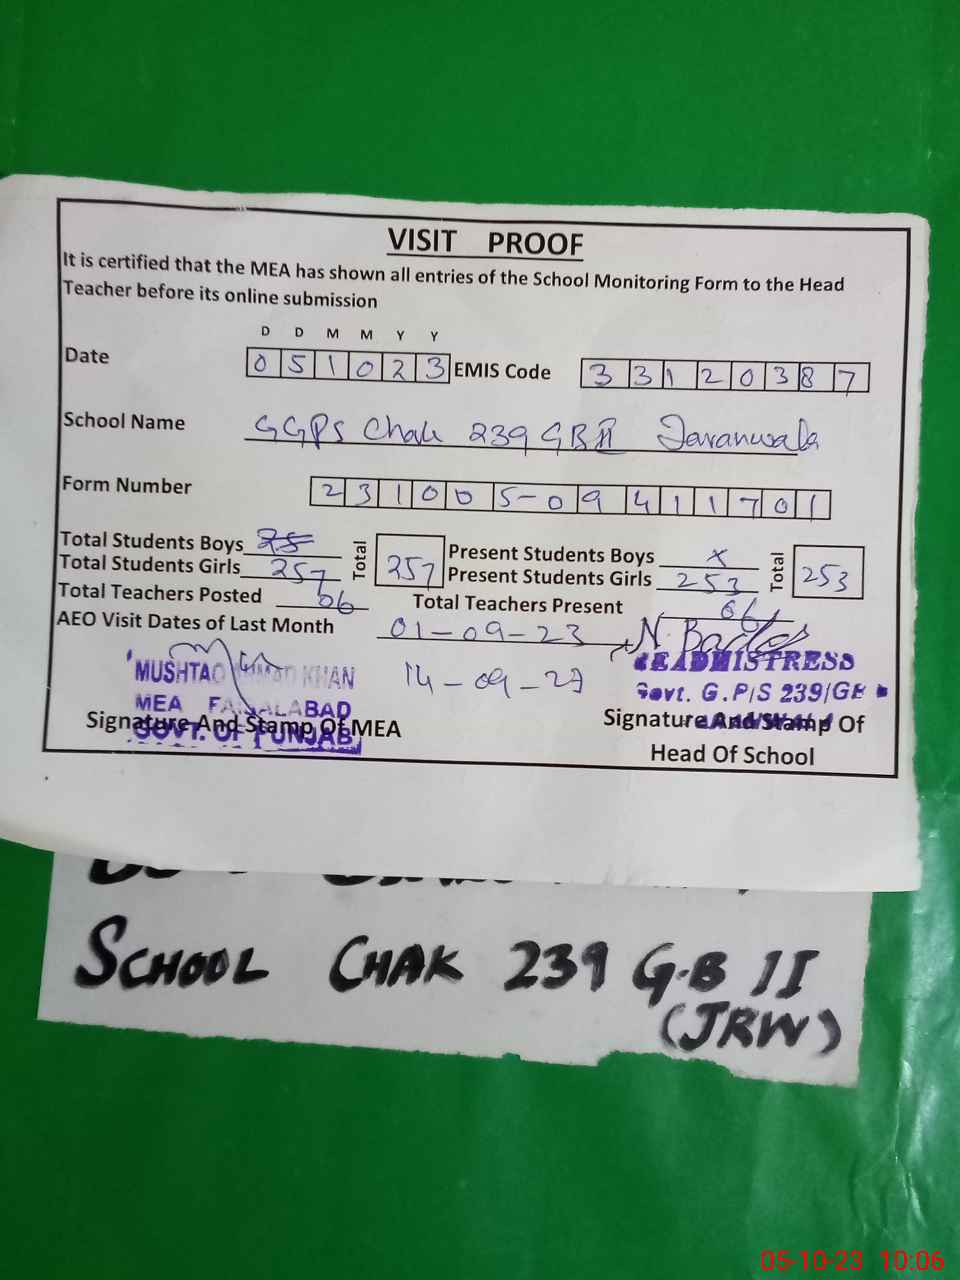 VISIT PROOF
It is certified that the MEA has shown all entries of the School Monitoring Form to the Head
Teacher before its online submission
D D M M Y Y
Date 0 5 1 0 2 3 EMIS Code 3 3 1 2 0 3 8 7
School Name GGPS Chak 239 GB II Jaranwala
Form Number 2 3 1 0 0 5 - 0 9 4 1 1 7 0 1
Total Students Boys Total Present Students Boys x Total
Total Students Girls 257 257 Present Students Girls 253 253
Total Teachers Posted 06 Total Teachers Present 06
AEO Visit Dates of Last Month 01-09-23
14-09-23
MUSHTAQ AHMAD KHAN
MEA FAISALABAD
GOVT. OF PUNJAB
Signature And Stamp Of MEA
HEADMISTRESS
Govt. G.P/S 239/GB
Signature And Stamp Of
Head Of School
SCHOOL CHAK 239 G.B II
(JRW)
05-10-23 10:06